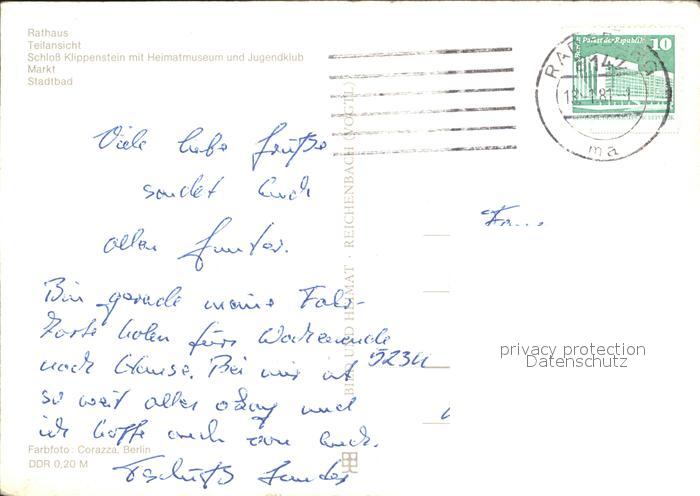 Rathaus
Teilansicht
Schloß Klippenstein mit Heimatmuseum und Jugendklub
Markt
Stadtbad
Palast der Republik
10
142
ma
Viele liebe Grüße
sendet Euch
allen Gunter.
Bin gerade meine Fahr-
karte holen fürs Wochenende
nach Hause. Bei mir ist
so weit alles okay und
ich hoffe auch von Euch.
Tschüß Gunter
Farbfoto: Corazza, Berlin
DDR 0,20 M
BILD UND HEIMAT · REICHENBACH (VOGTL)
Fa...
5234
privacy protection
Datenschutz